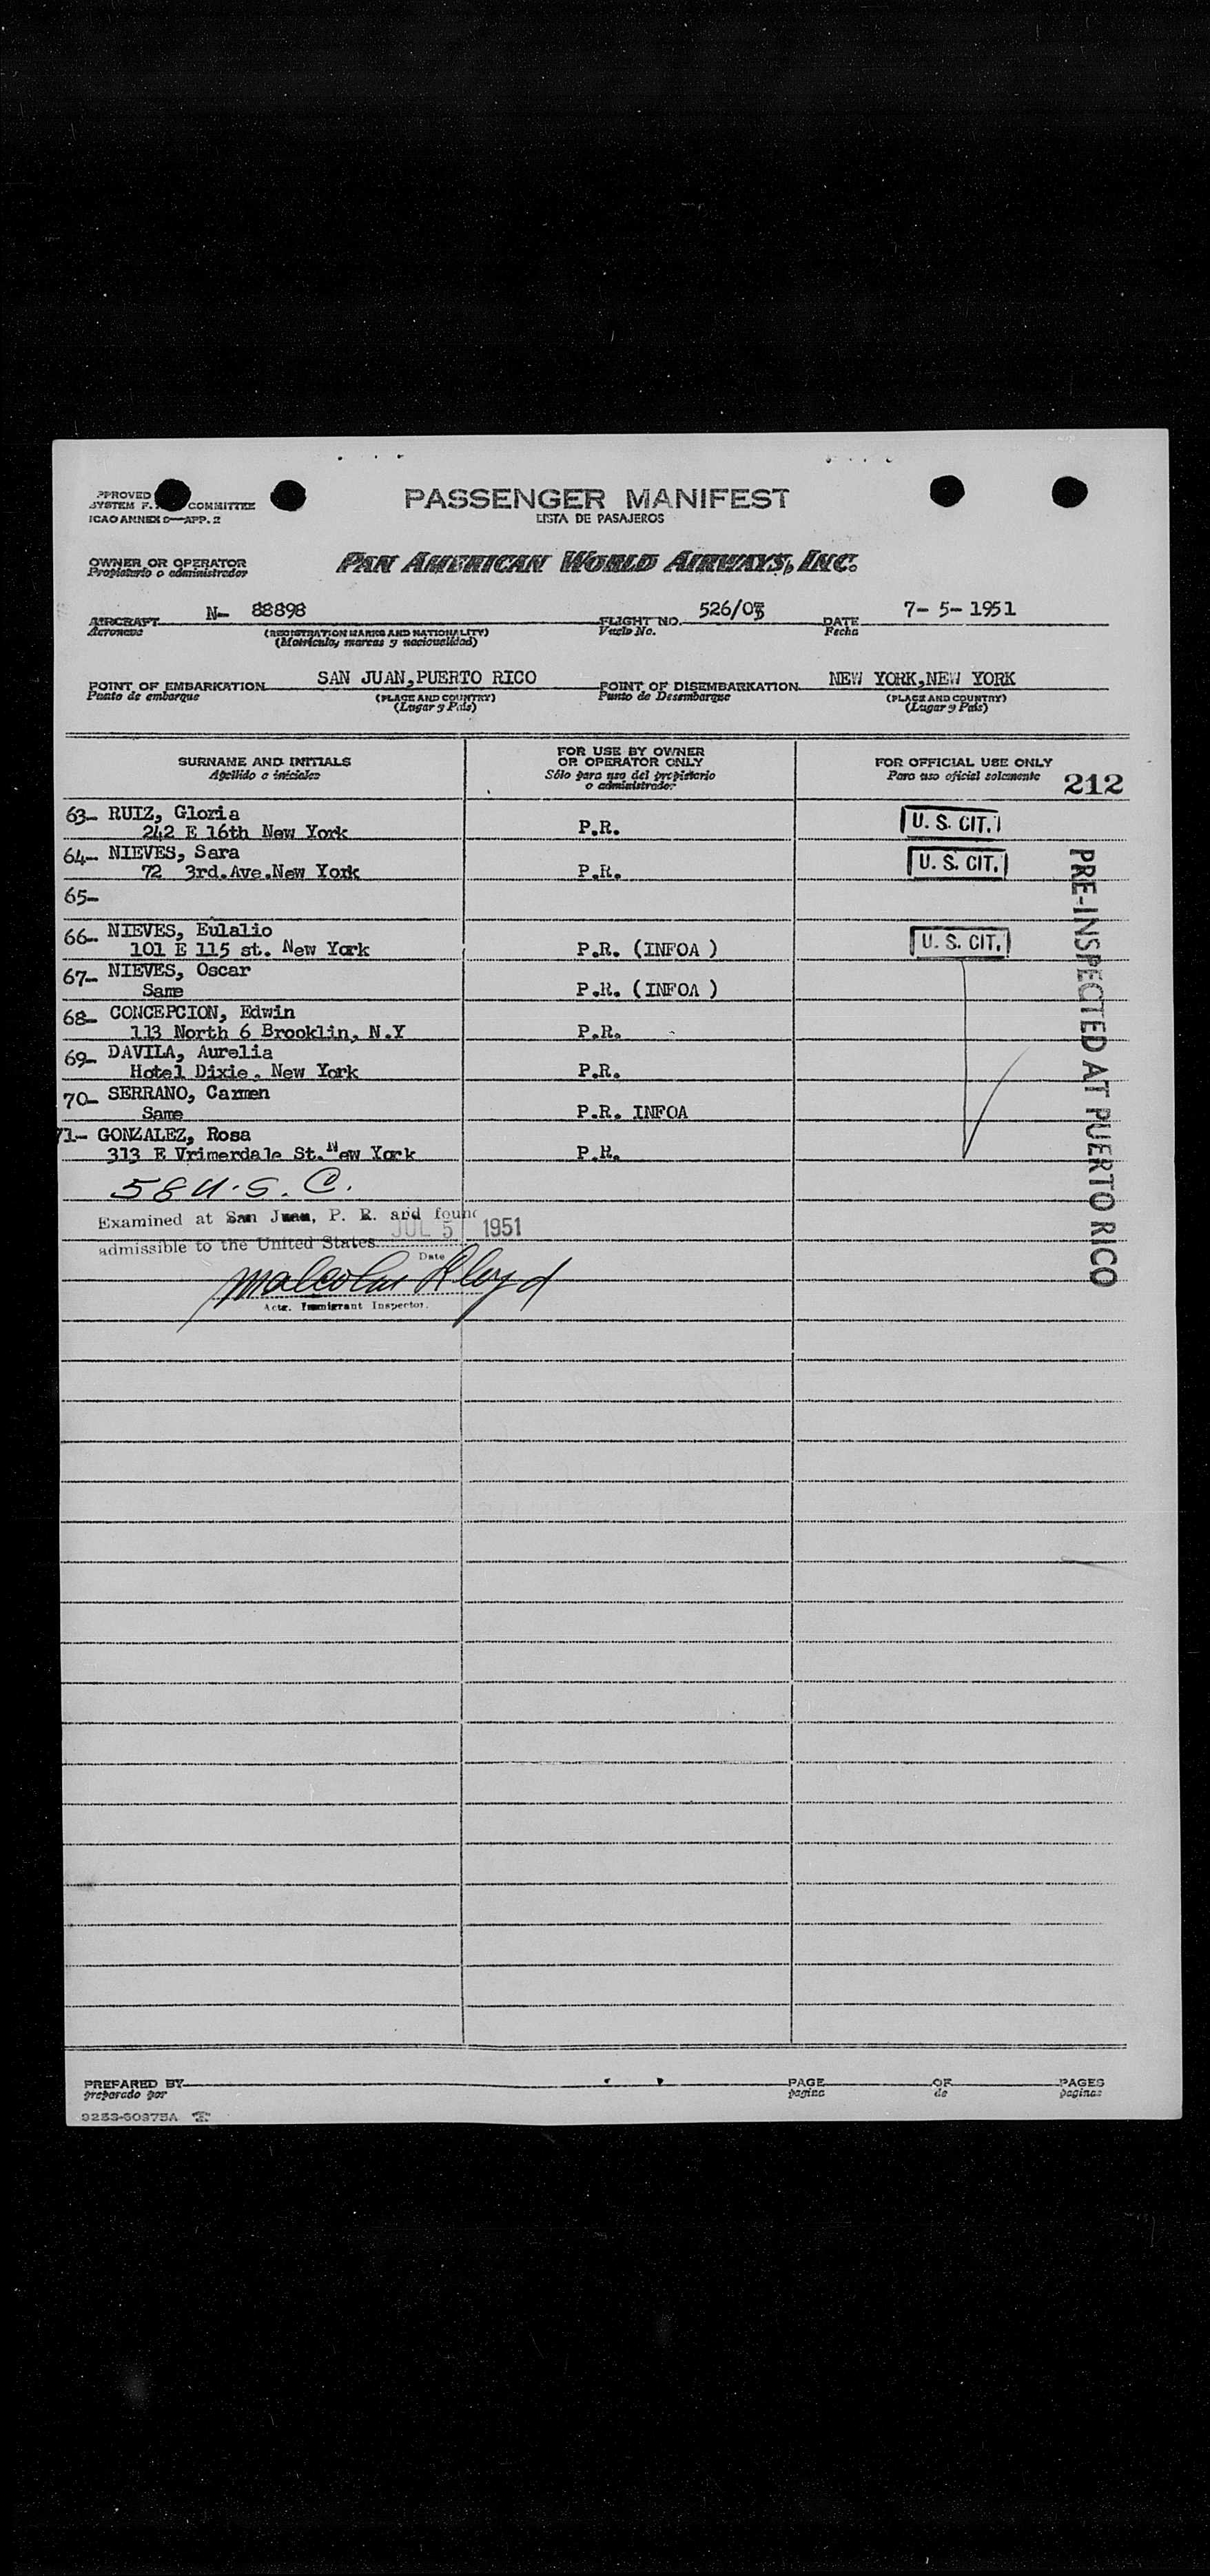 PPROVED
SYSTEM F. COMMITTEE
ICAO ANNEX 9—APP. 2
PASSENGER MANIFEST
LISTA DE PASAJEROS
OWNER OR OPERATOR
Propietario o administrador
PAN AMERICAN WORLD AIRWAYS, INC.
AIRCRAFT N- 88898
Aeronave
(REGISTRATION MARKS AND NATIONALITY)
(Matrícula, marcas y nacionalidad)
FLIGHT NO. 526/03
Vuelo No.
DATE 7- 5- 1951
Fecha
POINT OF EMBARKATION SAN JUAN,PUERTO RICO
Punto de embarque
(PLACE AND COUNTRY)
(Lugar y País)
POINT OF DISEMBARKATION NEW YORK,NEW YORK
Punto de Desembarque
(PLACE AND COUNTRY)
(Lugar y País)
SURNAME AND INITIALS
Apellido e iniciales
FOR USE BY OWNER
OR OPERATOR ONLY
Sólo para uso del propietario
o administrador
FOR OFFICIAL USE ONLY
Para uso oficial solamente
212
63- RUIZ, Gloria
242 E 16th New York P.R. U. S. CIT.
64- NIEVES, Sara
72 3rd.Ave.New York P.R. U. S. CIT.
65-
66- NIEVES, Eulalio
101 E 115 st. New York P.R. (INFOA ) U. S. CIT.
67- NIEVES, Oscar
Same P.R. (INFOA )
68- CONCEPCION, Edwin
113 North 6 Brooklin, N.Y P.R.
69- DAVILA, Aurelia
Hotel Dixie, New York P.R.
70- SERRANO, Carmen
Same P.R. INFOA
71- GONZALEZ, Rosa
313 E Vrimerdale St. New York P.R.
PRE-INSPECTED AT PUERTO RICO
58 U.S.C.
Examined at San Juan, P. R. and found
admissible to the United States JUL 5 1951
Date
Malcolm Lloyd
Actg. Immigrant Inspector.
PREPARED BY
preparado por
PAGE
pagina
OF
de
PAGES
paginas
9253-60975A